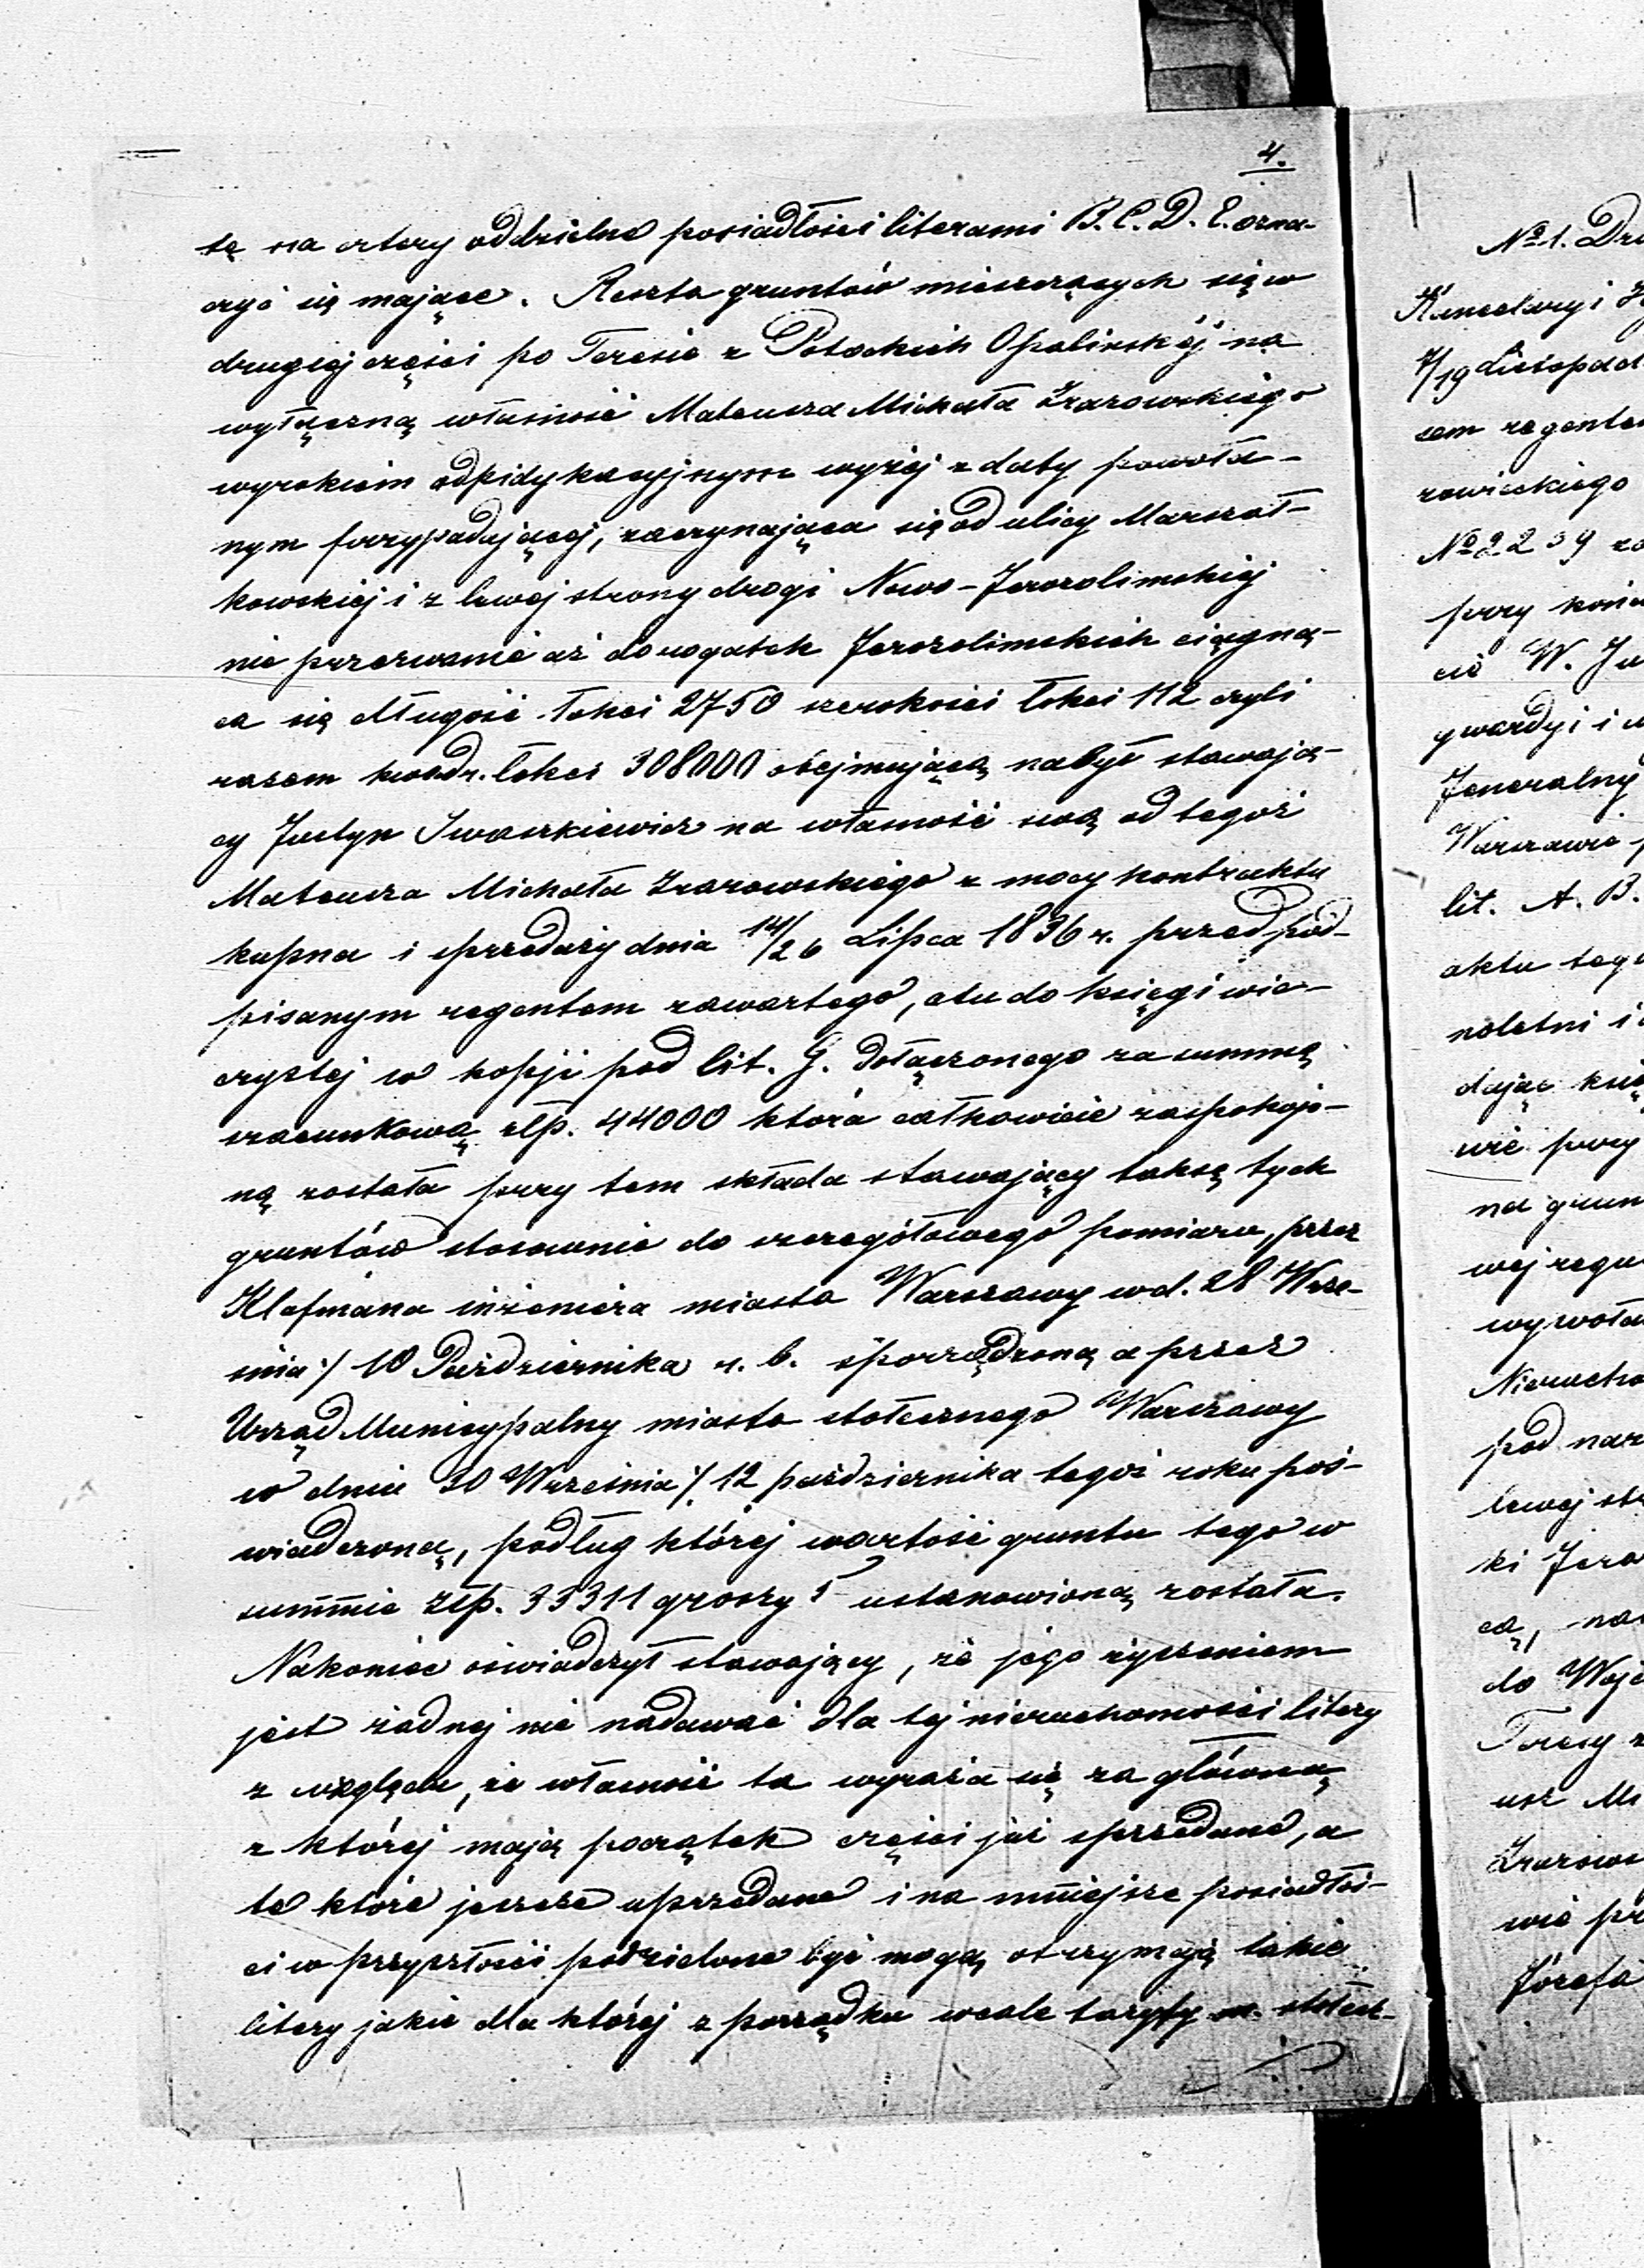 4.
tę na cztery oddzielne posiadłości literami B. C. D. E. ozna-
czyć się mające. Reszta gruntów mieszczących się w
drugiej części po Teresie z Potockich Opalińskiéj na
wyłączną własność Mateusza Michała Zrazowskiego
wyrokiem adjudykacyjnym wyżej z daty powoła-
nym przypadającej, zaczynająca się od ulicy Marszał-
kowskiej i z lewej strony drogi Nowo-Jerozolimskiej
nie przerwanie aż do rogatek Jerozolimskich ciągną-
ca się długość łokci 2750 szerokości łokci 112 czyli
razem kwadr. łokci 308000 obejmującą nabył stawają-
cy Justyn Iwaszkiewicz na własność swą od tegoż
Mateusza Michała Zrazowskiego z mocy kontraktu
kupna i sprzedaży dnia 14/26 Lipca 1836 r. przed pod-
pisanym regentem zawartego, a tu do księgi wie-
czystej w kopji pod lit. G. dołączonego za summę
szacunkową złp. 44000 która całkowicie zaspokojo-
ną została przy tem składa stawający taksę tych
gruntów stosownie do szczegółowego pomiaru, przez
Klafmana inżeniera miasta Warszawy w d. 28 Wrze-
śnia / 10 Października r. b. sporządzoną a przez
Urząd Municypalny miasta stołecznego Warszawy
w dniu 30 Września / 12 października tegoż roku poś-
wiadczoną, podług której wartość gruntu tego w
summie złp. 33311 groszy 5 ustanowioną została.
Nakoniec oświadczył stawający, że jego życzeniem
jest żadnej nie nadawać dla tej nieruchomości litery
z względu, że własność ta wyraża się za główną
z której mają początek części już sprzedane, a
te które jeszcze uprzedane i na mniejsze posiadłoś-
ci w przyszłości podzielone być mogą otrzymają takie
litery jakie dla której z porządku wcale taryfy m. stołecz-
No 1.
Kancelaryi
7/19 Listopad
No 2239
przy
W.
gwardyi i
Jeneralny
Warszawie
lit. A. B.
aktu
dając
przy
na
Nierucho
pod
lewej
ki
do
Teresy
Józefa